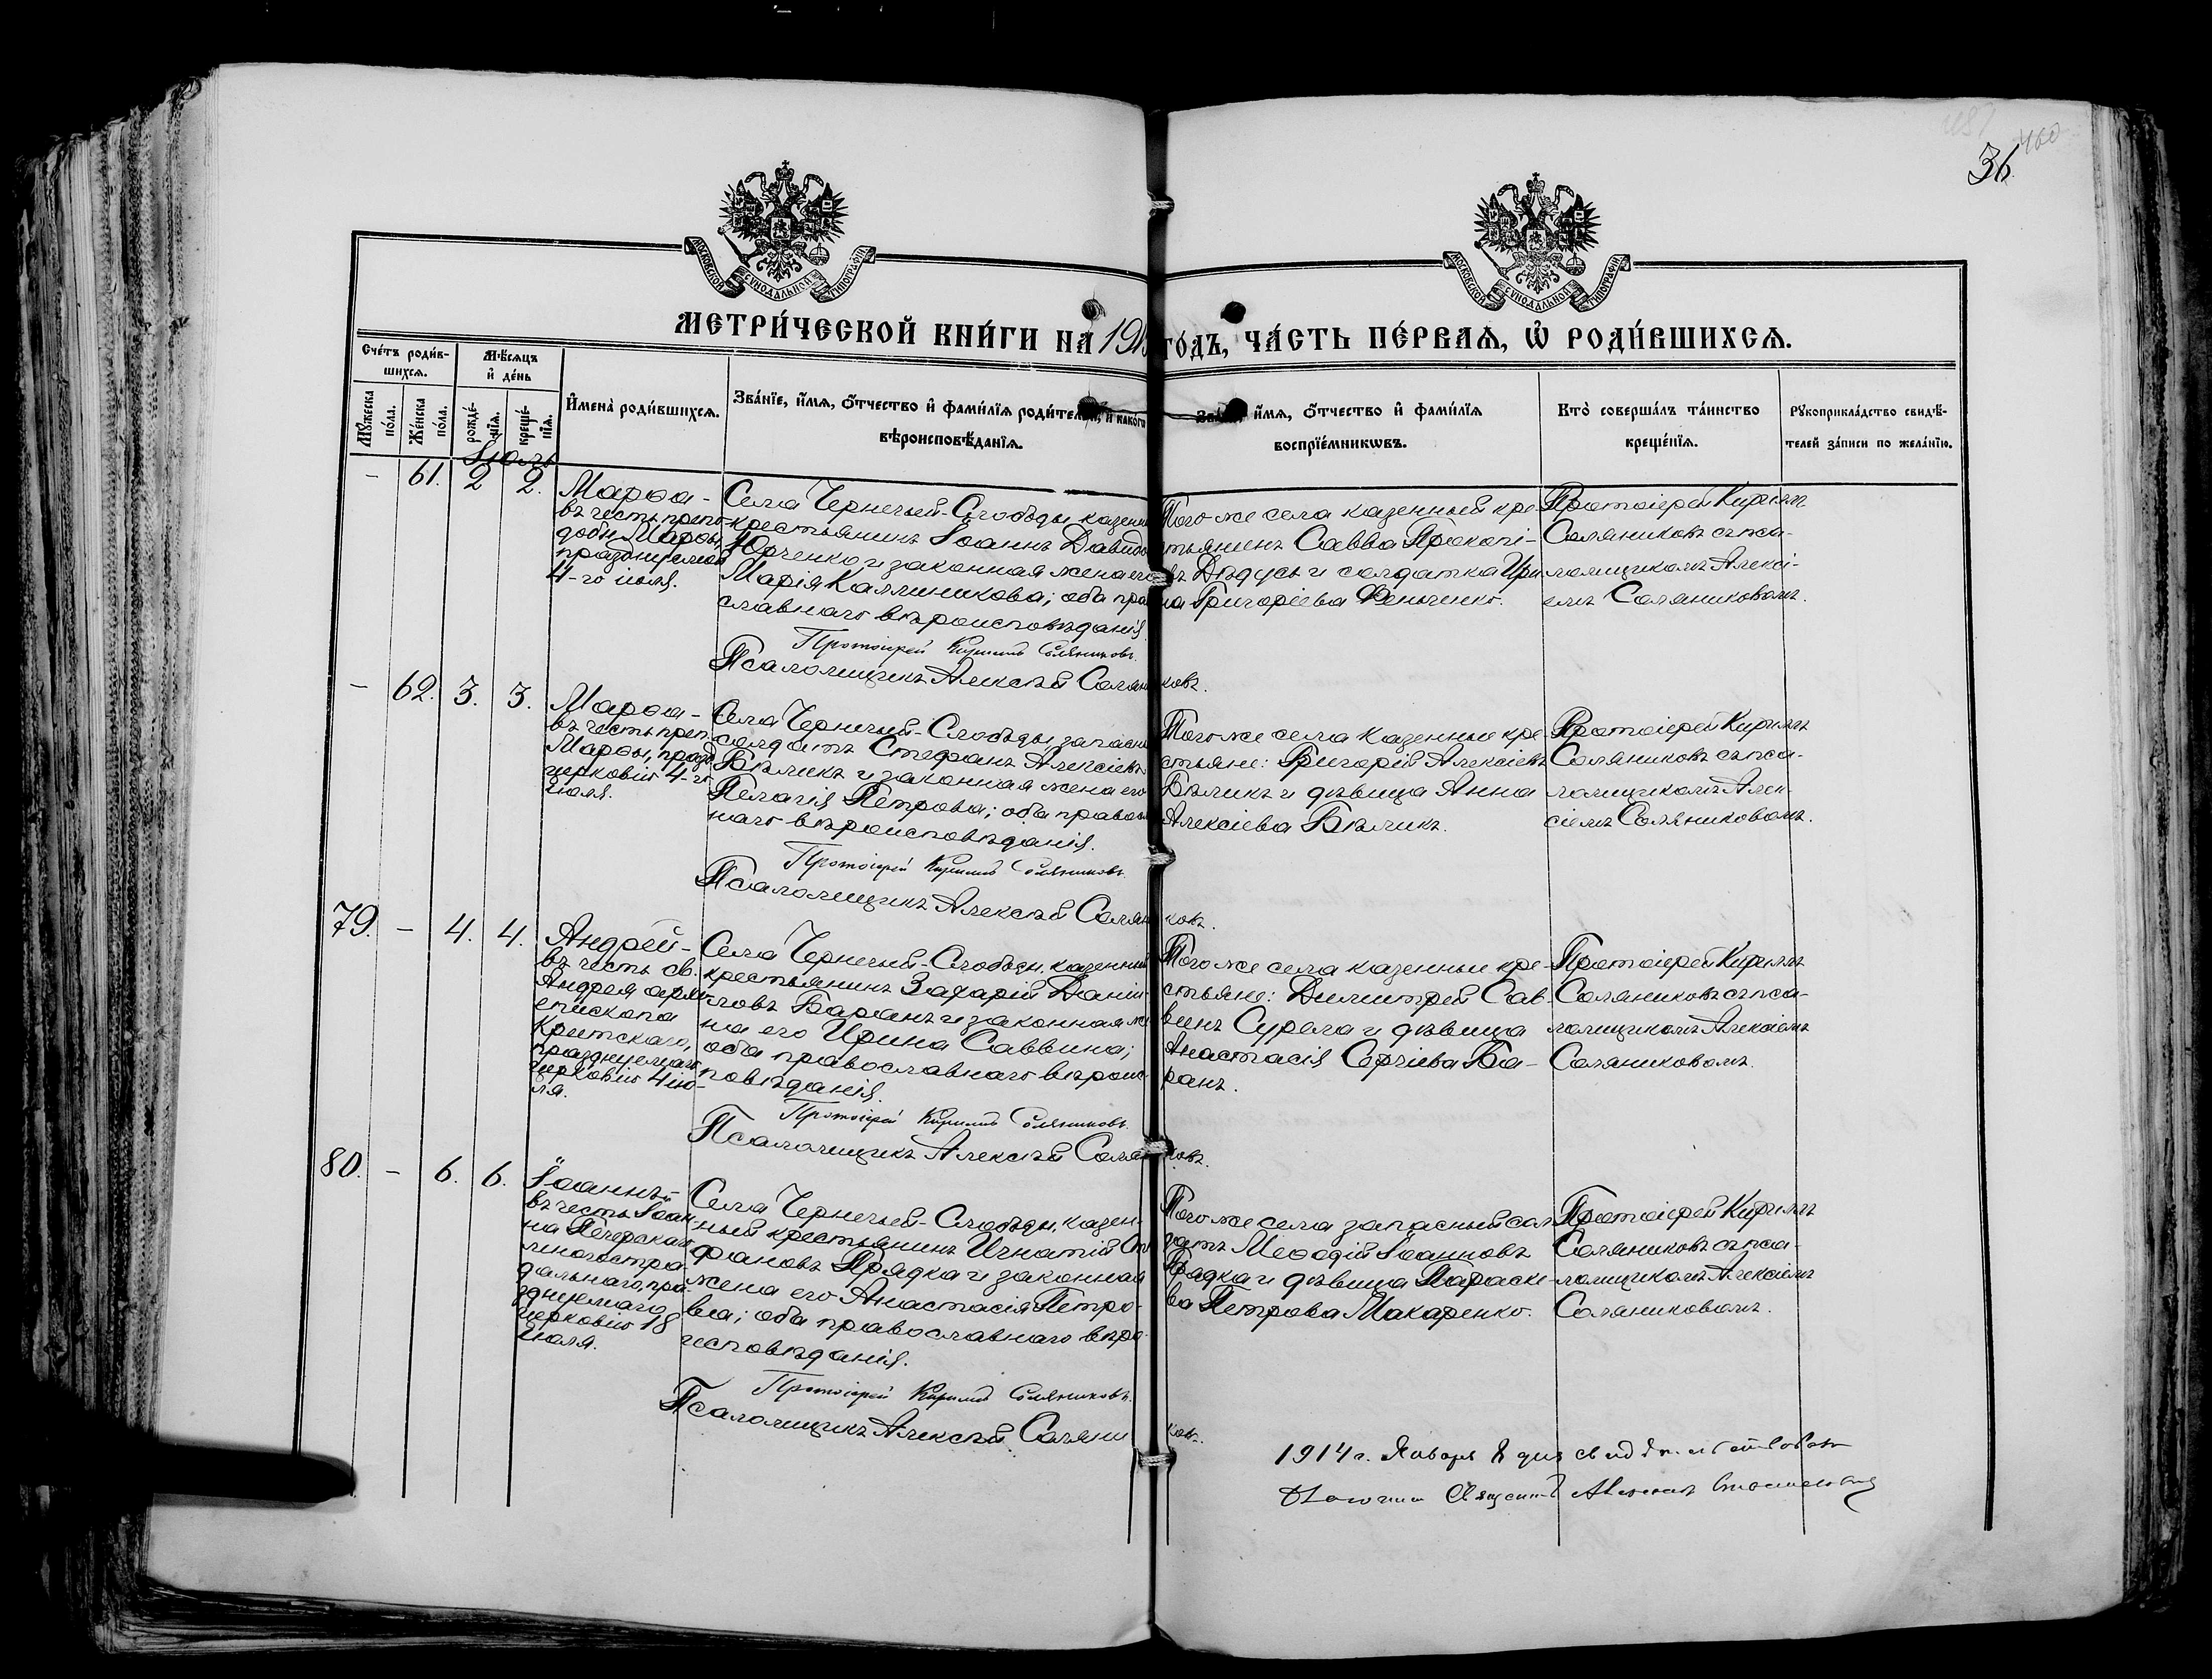 481
460
36.
МОСКОВСКОЙ СѴНОДАЛЬНОЙ ТИПОГРАФІИ
МОСКОВСКОЙ СѴНОДАЛЬНОЙ ТИПОГРАФІИ
МЕТРИ́ЧЕСКОЙ КНИ́ГИ НА 191 ГО́ДЪ, ЧА́СТЬ ПЕ́РВАѦ, Ѡ҆ РОДИ́ВШИХСѦ.
Сче́тъ роди́в-
шихсѧ.
Мѣ́сѧцъ
и҆ де́нь
Мꙋ́жеска по́ла.
Же́нска по́ла.
рожде́-
нїѧ.
креще́-
нїѧ.
И҆мена̀ роди́вшихсѧ.
Зва́нїе, и҆́мѧ, ѻ҆́тчество и҆ фами́лїѧ роди́телей, и҆ како́гѡ
вѣроисповѣ́данїѧ.
Зва́нїе, и҆́мѧ, ѻ҆́тчество и҆ фами́лїѧ
воспрїе́мникѡвъ.
Кто̀ соверша́лъ та́инство
креще́нїѧ.
Рꙋкоприкла́дство свидѣ́-
телей за́писи по жела́нїю.
Іюль
- 61. 2 2.
Марѳа -
въ честь препо-
добн. Марѳы,
празднуемой
4-го июля.
Села Чернечьей-Слободы казенн
крестьянинъ Іоаннъ Давидо
Юрченко и законная жена его
Марія Каллиникова; оба пра
славнаго вѣроисповѣданія.
Протоіерей Кириллъ Соляниковъ.
Псаломщикъ Алексѣй Соляниковъ.
Того же села казенный кре-
стьянинъ Савва Прокопі-
въ Дѣдусь и солдатка Ири
на Григоріева Феньченко.
Протоіерей Кириллъ
Соляниковъ съ пса-
ломщикомъ Алексі-
емъ Соляниковомъ.
- 62. 3. 3.
Марѳа -
въ честь преп.
Марѳы, празд.
церковію 4-го
июля.
Села Чернечьей-Слободы, запасн
солдатъ Стефанъ Алексіевъ
Бѣликъ и законная жена его
Пелагія Петрова; оба правосл
наго вѣроисповѣданія.
Протоіерей Кириллъ Соляниковъ.
Псаломщикъ Алексѣй Соляниковъ.
Того же села казенные кре-
стьяне: Григорій Алексіевъ
Бѣликъ и дѣвица Анна
Алексіева Бѣликъ.
Протоіерей Кириллъ
Соляниковъ съ пса-
ломщикомъ Алек-
сіемъ Соляниковомъ.
79. - 4. 4.
Андрей -
въ честь св.
Андрея архі-
епископа
Критскаго,
празднуемаго
церковію 4 ию-
ля.
Села Чернечьей-Слободы, казенный
крестьянинъ Захарій Даніи-
ловъ Баранъ и законная же
на его Ирина Саввина;
оба православнаго вѣроис-
повѣданія.
Протоіерей Кириллъ Соляниковъ.
Псаломщикъ Алексѣй Соляниковъ.
Того же села казенные кре-
стьяне: Димитрій Сав-
винъ Сурела и дѣвица
Анастасія Сергіева Ба-
ранъ.
Протоіерей Кириллъ
Соляниковъ съ пса-
ломщикомъ Алексіемъ
Соляниковомъ.
80. - 6. 6.
Іоаннъ -
въ честь Іоан-
на Печерскаго
многостра-
дальнаго, пра-
зднуемаго
церковію 18
июля.
Села Чернечьей-Слободы, казен-
ный крестьянинъ Игнатій Ст
фановъ Прядка и законная
жена его Анастасія Петро-
ва; оба православнаго вѣро-
исповѣданія.
Протоіерей Кириллъ Соляниковъ.
Псаломщикъ Алексѣй Соляниковъ.
Того же села запасный сол
датъ Меѳодій Іоанновъ
Прядка и дѣвица Параске-
ва Петрова Макаренко.
Протоіерей Кириллъ
Соляниковъ съ пса-
ломщикомъ Алексіемъ
Соляниковомъ.
1914 г. Января 8 дня свидѣтельствовалъ
Священ